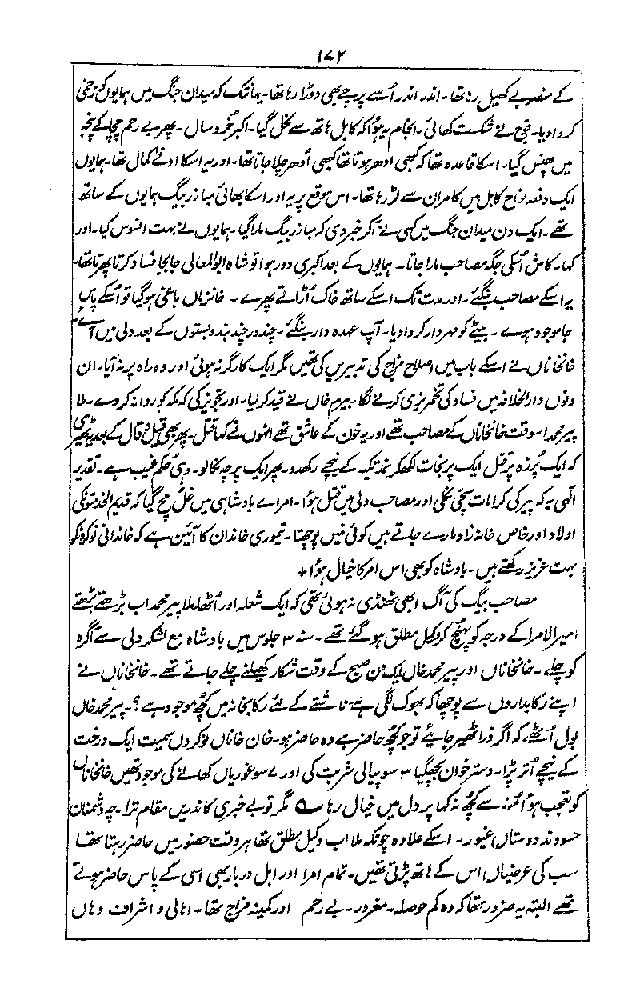 ۱۷۲
کے سفر بے کھیل رہا تھا۔ اندر اندر اُسے پرچے بھی دوڑا رہا تھا۔ یہانتک کہ میدان جنگ میں ہمایوں کو زخمی
کروا دیا۔ فوج نے شکست کھائی۔ انجام یہ ہوا کہ کابل ہاتھ سے نکل گیا۔ اکبر خُورد سال۔ پھر بے رحم چچا کے پنجہ
میں پھنس گیا۔ اسکا قاعدہ تھا کہ کبھی ادھر ہوتا تھا کبھی اُدھر چلا جاتا تھا۔ اور یہ اسکا ادنےٰ کمال تھا۔ ہمایوں
ایک دفعہ نواح کابل میں کامران سے لڑ رہا تھا۔ اس موقع پر یہ اور اسکا بھائی مبارز بیگ ہمایوں کے ساتھ
تھے۔ ایک دن میدان جنگ میں کسی نے آکر خبر دی کہ مبارز بیگ مارا گیا۔ ہمایوں نے بہت افسوس کیا۔ اور
کہا۔ کاش اُسکی جگہ مصاحب مارا جاتا۔ ہمایوں کے بعد اکبری دور ہوا تو شاہ ابوالمعالی جابجا فساد کرتا پھرتا تھا۔
یہ اسکے مصاحب بنگئے۔ اور مدت تک اسکے ساتھ خاک اُڑاتے پھرے۔ خانزماں باغی ہو گیا تو اُسکے پاس
جا موجود ہوے۔ بیٹے کو مہردار کروا دیا۔ آپ عہدہ دار بنگئے۔ چند در چند بندوبستوں کے بعد دلی میں آئے
خانخاناں نے اسکے باب میں اصلاح مزاج کی تدبیریں کی تھیں مگر ایک کارگر نہ ہوئی اور وہ راہ پر نہ آیا۔ ان
دنوں دارالخلافہ میں فساد کی تخم ریزی کرنے لگا۔ بیرم خاں نے قید کر لیا۔ اور تجویز کی کہ مکہ کو روانہ کر دے۔ ملا
پیر محمد اسوقت خانخاناں کے مصاحب تھے اور یہ خون کے عاشق تھے انہوں نے کہا قتل۔ پھر بھی قیل و قال کے بعد یہ ٹھیری
کہ ایک پُرزہ پر قتل ایک پر نجات لکھکر نمد تکیہ کے نیچے رکھدو۔ پھر ایک پرچہ نکالو۔ وہی حکم غیب ہے۔ تقدیر
الٰہی یہ کہ پیر کی کرامات سچی نکلی اور مصاحب دلی میں قتل ہوا۔ امراے بادشاہی میں غل مچ گیا کہ قدیم الخدمتوں کی
اولاد اور خاص خانہ زاد مارے جاتے ہیں کوئی نہیں پوچھتا۔ تیموری خاندان کا آئین ہے کہ خاندانی نوکروں کو
بہت عزیز رکھتے ہیں۔ بادشاہ کو بھی اس امر کا خیال ہوا +
مصاحب بیگ کی آگ ابھی ٹھنڈی نہ ہوئی تھی کہ ایک شعلہ اور اُٹھا ملا پیر محمد اب بڑھتے بڑھتے
امیر الامرا کے درجہ کو پہنچ کر وکیل مطلق ہو گئے تھے۔ سنہ ۳ جلوس میں بادشاہ مع لشکر دلی سے آگرہ
کو چلے۔ خانخاناں اور پیر محمد خاں ایک دن صبح کے وقت شکار کھیلتے چلے جاتے تھے۔ خانخاناں نے
اپنے رکابداروں سے پوچھا کہ بھوک لگی ہے ناشتے کے لئے رکابخانہ میں کچھ موجود ہے؟۔ پیر محمد خاں
بول اُٹھے۔ کہ اگر ذرا ٹھہر جایئے تو جو کچھ حاضر ہے وہ حاضر ہو۔ خان خاناں نوکروں سمیت ایک درخت
کے نیچے اُتر پڑا۔ دسترخوان بچھ گیا ۳ سو پیالی شربت کی اور ۷ سو غوریاں کھانے کی موجود تھیں خانخاناں
کو تعجب ہوا۔ منہ سے کچھ نہ کہا پر دل میں خیال رہا ؎ مگر تو بے خبری کاندریں مقام ترا۔ چہ دشمنان
حسود ند دوستان غیور۔ اسکے علاوہ چونکہ ملا اب وکیل مطلق تھا ہر وقت حضور میں حاضر رہتا تھا
سب کی عرضیاں اس کے ہاتھ پڑتی تھیں۔ تمام امرا اور اہل دربار بھی اسی کے پاس حاضر ہوتے
تھے البتہ یہ ضرور تھا کہ وہ کم حوصلہ۔ مغرور۔ بے رحم اور کمینہ مزاج تھا۔ اہالی و اشراف وہاں